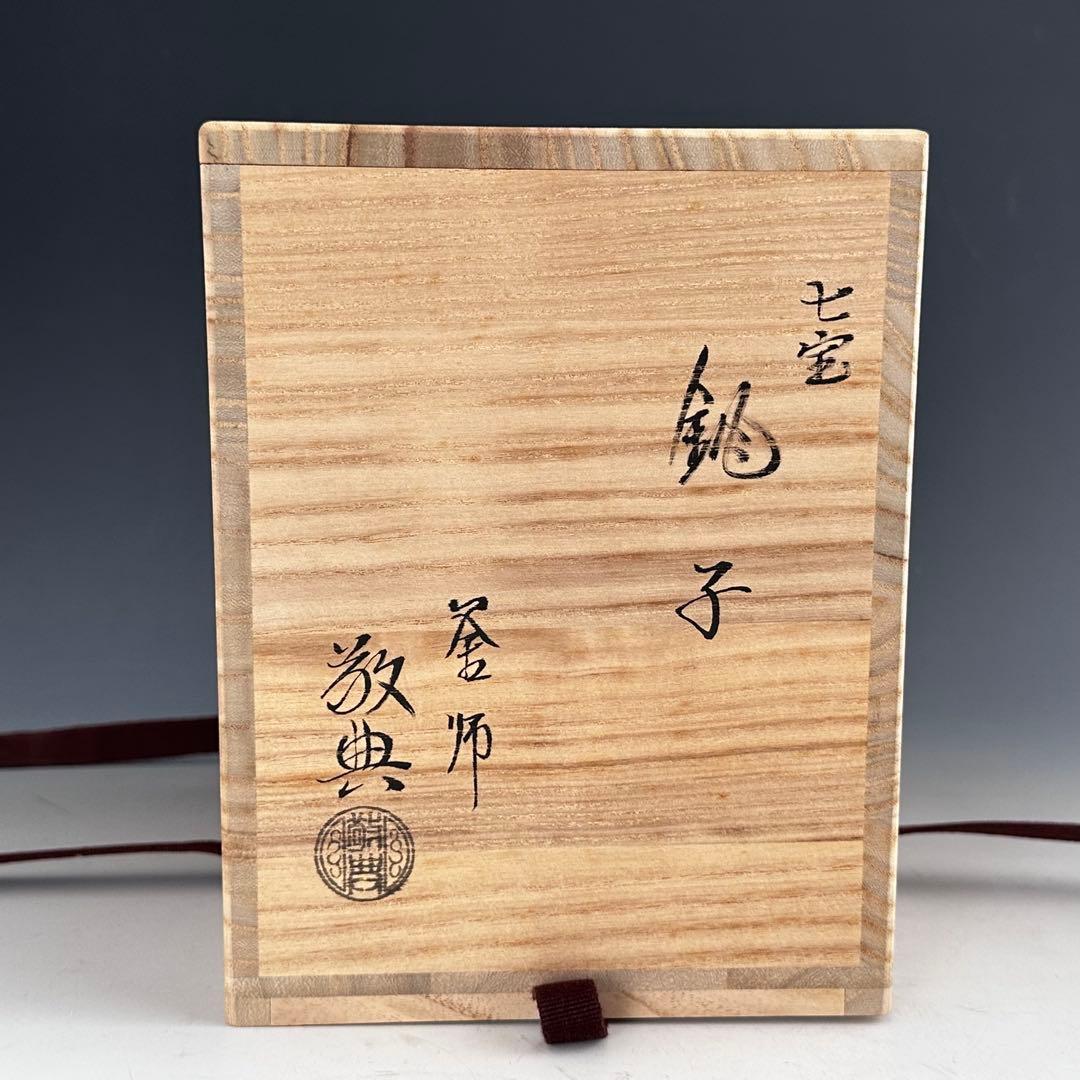 七宝
銚子
釜師
敬典
敬典